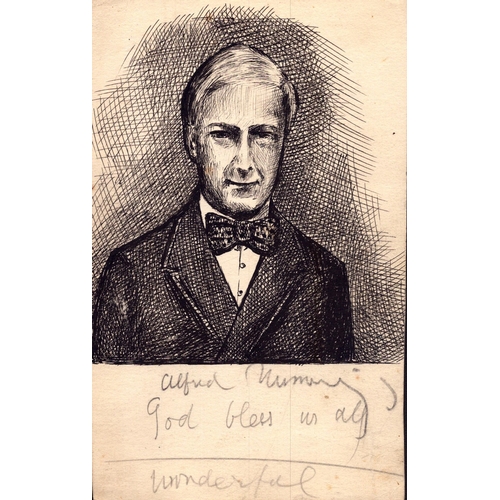 Alfred
God bless us all
wonderful